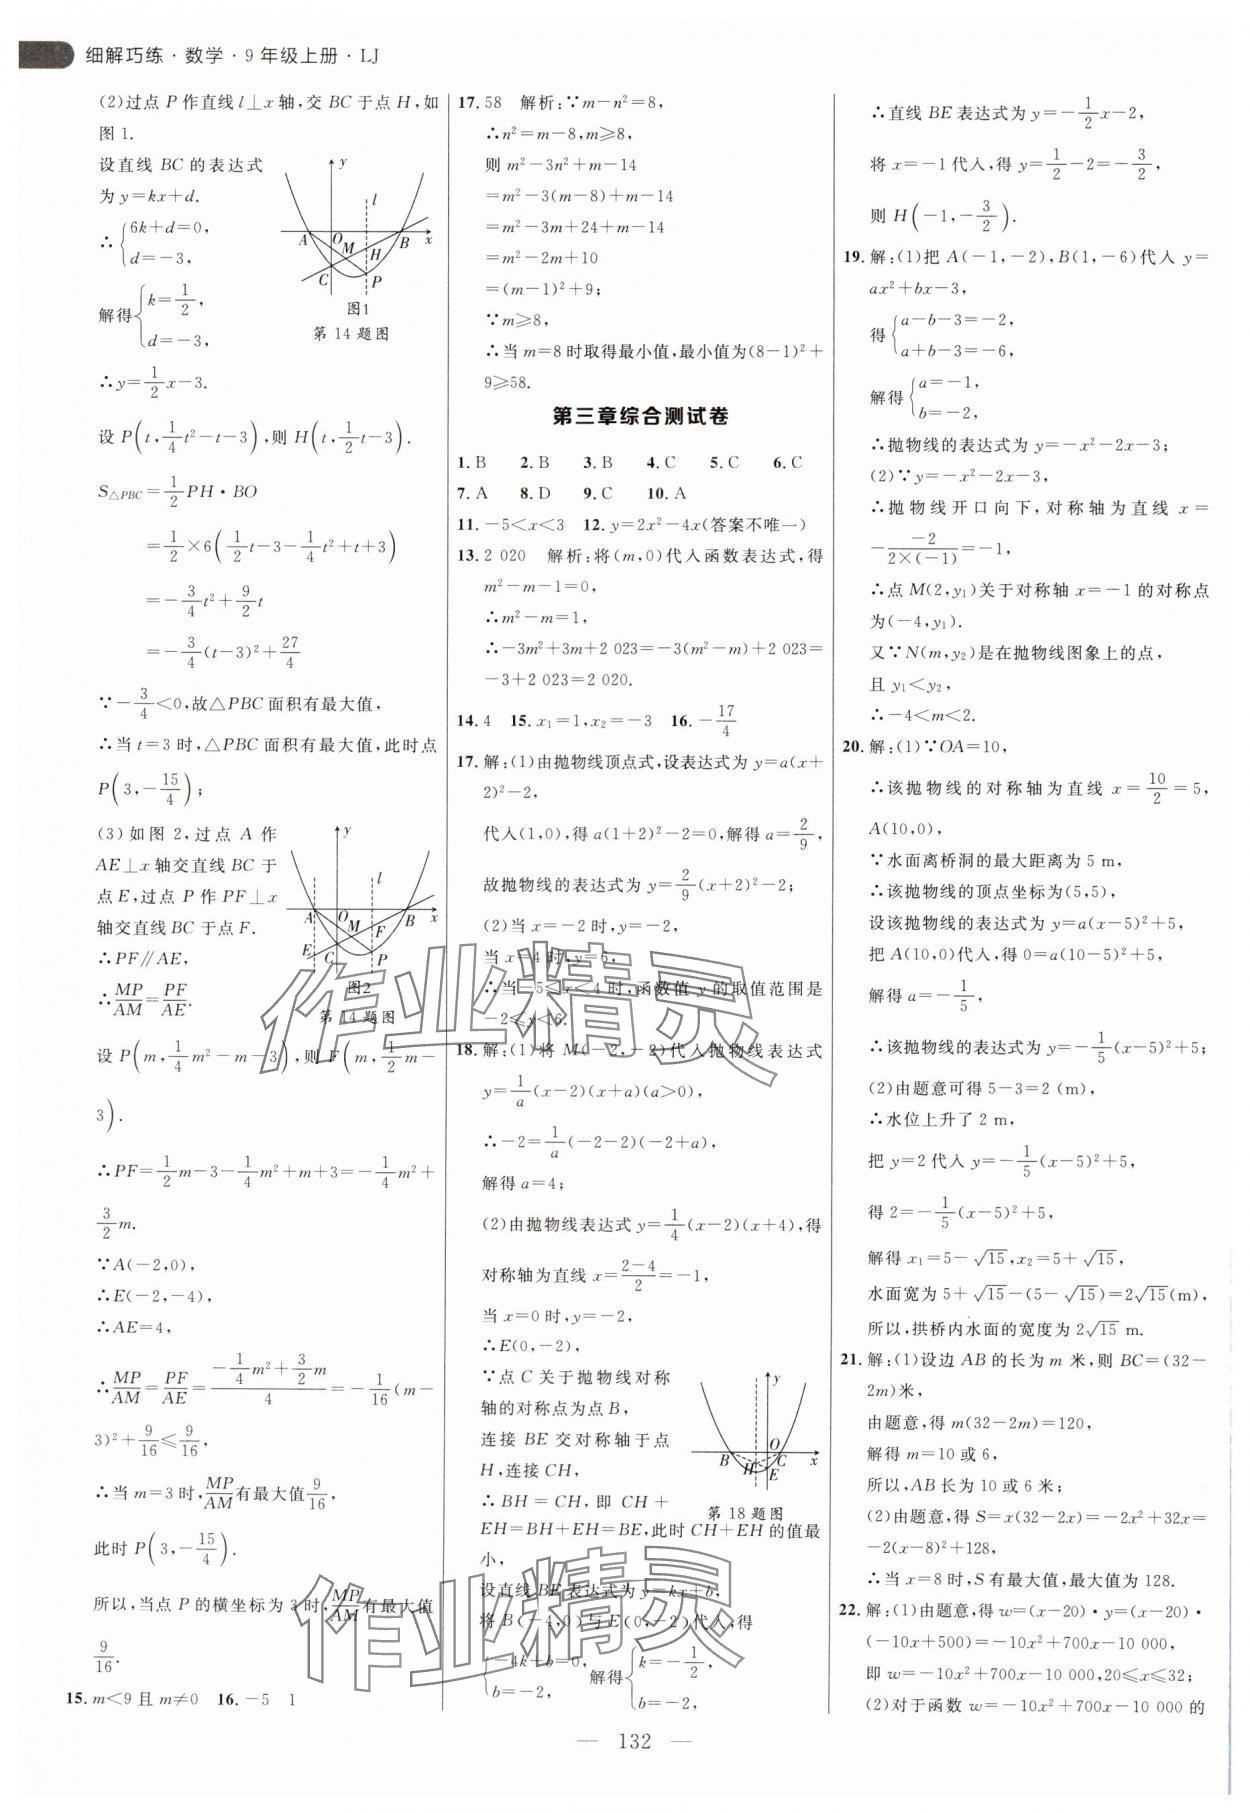 细解巧练·数学·9年级上册·LJ
(2)过点P作直线l⊥x轴,交BC于点H,如
图1.
设直线BC的表达式
为y=kx+d.
∴{6k+d=0,
d=-3,
解得{k=1/2,
d=-3,
图1
第14题图
∴y=1/2x-3.
设P(t,1/4t²-t-3),则H(t,1/2t-3).
S△PBC=1/2PH·BO
=1/2×6(1/2t-3-1/4t²+t+3)
=-3/4t²+9/2t
=-3/4(t-3)²+27/4
∵-3/4<0,故△PBC面积有最大值,
∴当t=3时,△PBC面积有最大值,此时点
P(3,-15/4);
(3)如图2,过点A作
AE⊥x轴交直线BC于
点E,过点P作PF⊥x
轴交直线BC于点F.
∴PF∥AE,
∴MP/AM=PF/AE.
图2
第14题图
设P(m,1/4m²-m-3),则F(m,1/2m-
3).
∴PF=1/2m-3-1/4m²+m+3=-1/4m²+
3/2m.
∵A(-2,0),
∴E(-2,-4),
∴AE=4,
∴MP/AM=PF/AE=(-1/4m²+3/2m)/4=-1/16(m-
3)²+9/16≤9/16,
∴当m=3时,MP/AM有最大值9/16,
此时P(3,-15/4).
所以,当点P的横坐标为3时,MP/AM有最大值
9/16.
15.m<9且m≠0 16.-5 1
17.58 解析:∵m-n²=8,
∴n²=m-8,m≥8,
则m²-3n²+m-14
=m²-3(m-8)+m-14
=m²-3m+24+m-14
=m²-2m+10
=(m-1)²+9;
∵m≥8,
∴当m=8时取得最小值,最小值为(8-1)²+
9≥58.
第三章综合测试卷
1.B 2.B 3.B 4.C 5.C 6.C
7.A 8.D 9.C 10.A
11.-5<x<3 12.y=2x²-4x(答案不唯一)
13.2 020 解析:将(m,0)代入函数表达式,得
m²-m-1=0,
∴m²-m=1,
∴-3m²+3m+2 023=-3(m²-m)+2 023=
-3+2 023=2 020.
14.4 15.x₁=1,x₂=-3 16.-17/4
17.解:(1)由抛物线顶点式,设表达式为y=a(x+
2)²-2,
代入(1,0),得a(1+2)²-2=0,解得a=2/9,
故抛物线的表达式为y=2/9(x+2)²-2;
(2)当x=-2时,y=-2,
当x=4时,y=6,
∴当-5<x<4时,函数值y的取值范围是
-2≤y<6.
18.解:(1)将M(-2,-2)代入抛物线表达式
y=1/a(x-2)(x+a)(a>0),
∴-2=1/a(-2-2)(-2+a),
解得a=4;
(2)由抛物线表达式y=1/4(x-2)(x+4),得
对称轴为直线x=(2-4)/2=-1,
当x=0时,y=-2,
∴E(0,-2),
∵点C关于抛物线对称
轴的对称点为点B,
连接BE交对称轴于点
H,连接CH,
∴BH=CH,即CH+
第18题图
EH=BH+EH=BE,此时CH+EH的值最
小,
设直线BE表达式为y=kx+b,
将B(-4,0)与E(0,-2)代入,得
{-4k+b=0,
b=-2,
解得{k=-1/2,
b=-2,
∴直线BE表达式为y=-1/2x-2,
将x=-1代入,得y=1/2-2=-3/2,
则H(-1,-3/2).
19.解:(1)把A(-1,-2),B(1,-6)代入y=
ax²+bx-3,
得{a-b-3=-2,
a+b-3=-6,
解得{a=-1,
b=-2,
∴抛物线的表达式为y=-x²-2x-3;
(2)∵y=-x²-2x-3,
∴抛物线开口向下,对称轴为直线x=
-(-2)/(2×(-1))=-1,
∴点M(2,y₁)关于对称轴x=-1的对称点
为(-4,y₁).
又∵N(m,y₂)是在抛物线图象上的点,
且y₁<y₂,
∴-4<m<2.
20.解:(1)∵OA=10,
∴该抛物线的对称轴为直线x=10/2=5,
A(10,0),
∵水面离桥洞的最大距离为5 m,
∴该抛物线的顶点坐标为(5,5),
设该抛物线的表达式为y=a(x-5)²+5,
把A(10,0)代入,得0=a(10-5)²+5,
解得a=-1/5,
∴该抛物线的表达式为y=-1/5(x-5)²+5;
(2)由题意可得5-3=2 (m),
∴水位上升了2 m,
把y=2代入y=-1/5(x-5)²+5,
得2=-1/5(x-5)²+5,
解得x₁=5-√15,x₂=5+√15,
水面宽为5+√15-(5-√15)=2√15(m),
所以,拱桥内水面的宽度为2√15 m.
21.解:(1)设边AB的长为m米,则BC=(32-
2m)米,
由题意,得m(32-2m)=120,
解得m=10或6,
所以,AB长为10或6米;
(2)由题意,得S=x(32-2x)=-2x²+32x=
-2(x-8)²+128,
∴当x=8时,S有最大值,最大值为128.
22.解:(1)由题意,得w=(x-20)·y=(x-20)·
(-10x+500)=-10x²+700x-10 000,
即w=-10x²+700x-10 000,20≤x≤32;
(2)对于函数w=-10x²+700x-10 000的
— 132 —
作业精灵
作业精灵